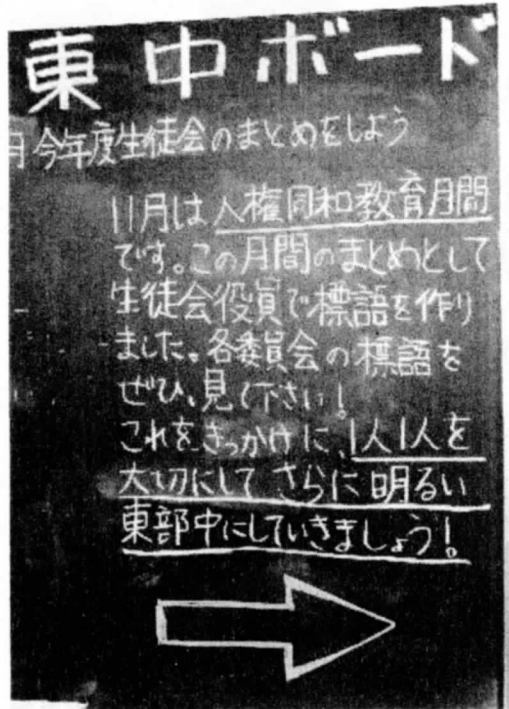 東中ボード
月今年度生徒会のまとめをしよう
11月は人権同和教育月間
です。この月間のまとめとして
生徒会役員で標語を作り
ました。各委員会の標語を
ぜひ、見て下さい!
これをきっかけに、1人1人を
大切にしてさらに明るい
東部中にしていきましょう!